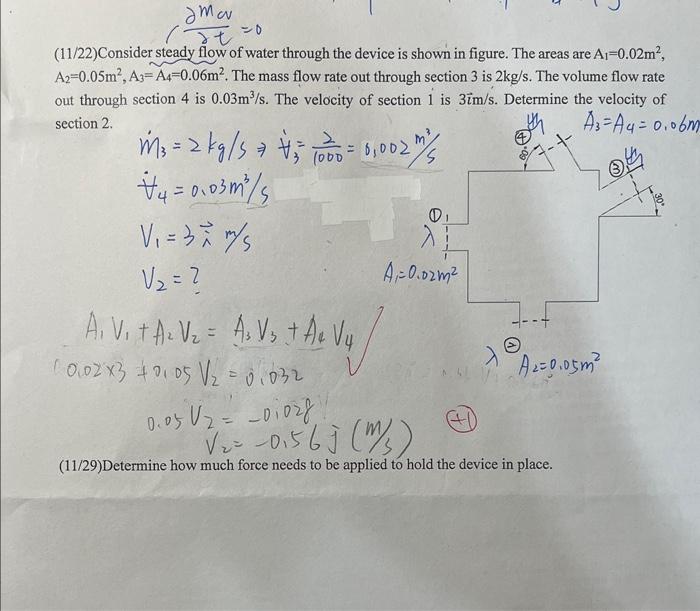 ∂mcv/∂t =0
(11/22)Consider steady flow of water through the device is shown in figure. The areas are A₁=0.02m²,
A₂=0.05m², A₃= A₄=0.06m². The mass flow rate out through section 3 is 2kg/s. The volume flow rate
out through section 4 is 0.03m³/s. The velocity of section 1 is 3i⃗m/s. Determine the velocity of
section 2.
ṁ₃ = 2 kg/s ⇒ V̇₃ = 2/1000 = 0,002 m³/s
V̇₄ = 0.03 m³/s
V₁ = 3 i⃗ m/s
V₂ = ?
④ 出 A₃=A₄=0.06m
60°
③ 出
30°
①
入
A₁=0.02m²
②
入 A₂=0.05m²
A₁V₁ + A₂V₂ = A₃V₃ + A₄V₄
0.02×3 + 0.05 V₂ = 0.032
0.05 V₂ = -0.028
V₂ = -0.56 j (m/s)
+1
(11/29)Determine how much force needs to be applied to hold the device in place.